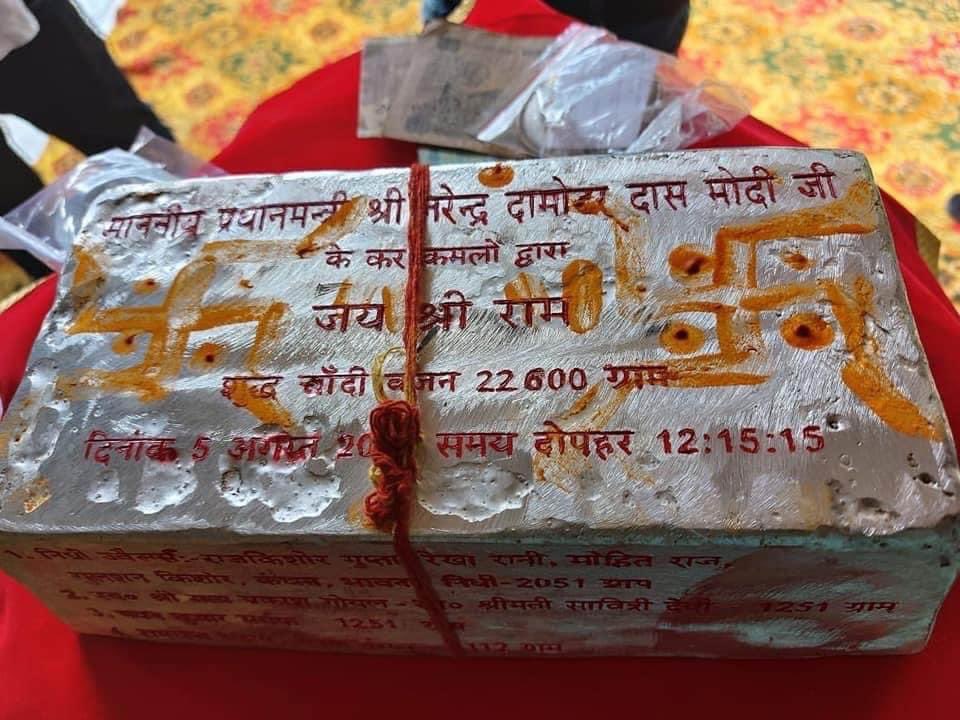 माननीय प्रधानमन्त्री श्री नरेन्द्र दामोदर दास मोदी जी
के कर कमलो द्वारा
जय श्री राम
शुद्ध चाँदी वजन 22600 ग्राम
दिनांक 5 अगस्त 20 समय दोपहर 12:15:15
1. निधी ज्वैलर्स:-राजकिशोर गुप्ता रेखा रानी, मोहित राज,
किशोर, भावना निधी-2051 ग्राम
2. स्व० श्री गोयल - श्रीमती सावित्री देवी 1251 ग्राम
3. 1251
4. 112 ग्राम